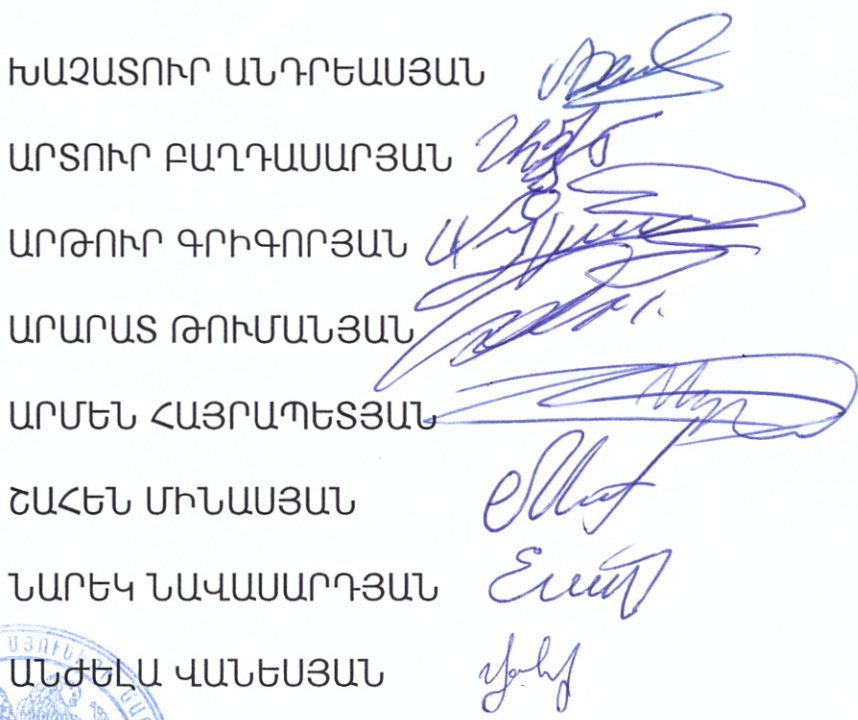 ԽԱՉԱՏՈՒՐ ԱՆԴՐԵԱՍՅԱՆ
ԱՐՏՈՒՐ ԲԱՂԴԱՍԱՐՅԱՆ
ԱՐԹՈՒՐ ԳՐԻԳՈՐՅԱՆ
ԱՐԱՐԱՏ ԹՈՒՄԱՆՅԱՆ
ԱՐՄԵՆ ՀԱՅՐԱՊԵՏՅԱՆ
ՇԱՀԵՆ ՄԻՆԱՍՅԱՆ
ՆԱՐԵԿ ՆԱՎԱՍԱՐԴՅԱՆ
ԱՆԺԵԼԱ ՎԱՆԵՍՅԱՆ